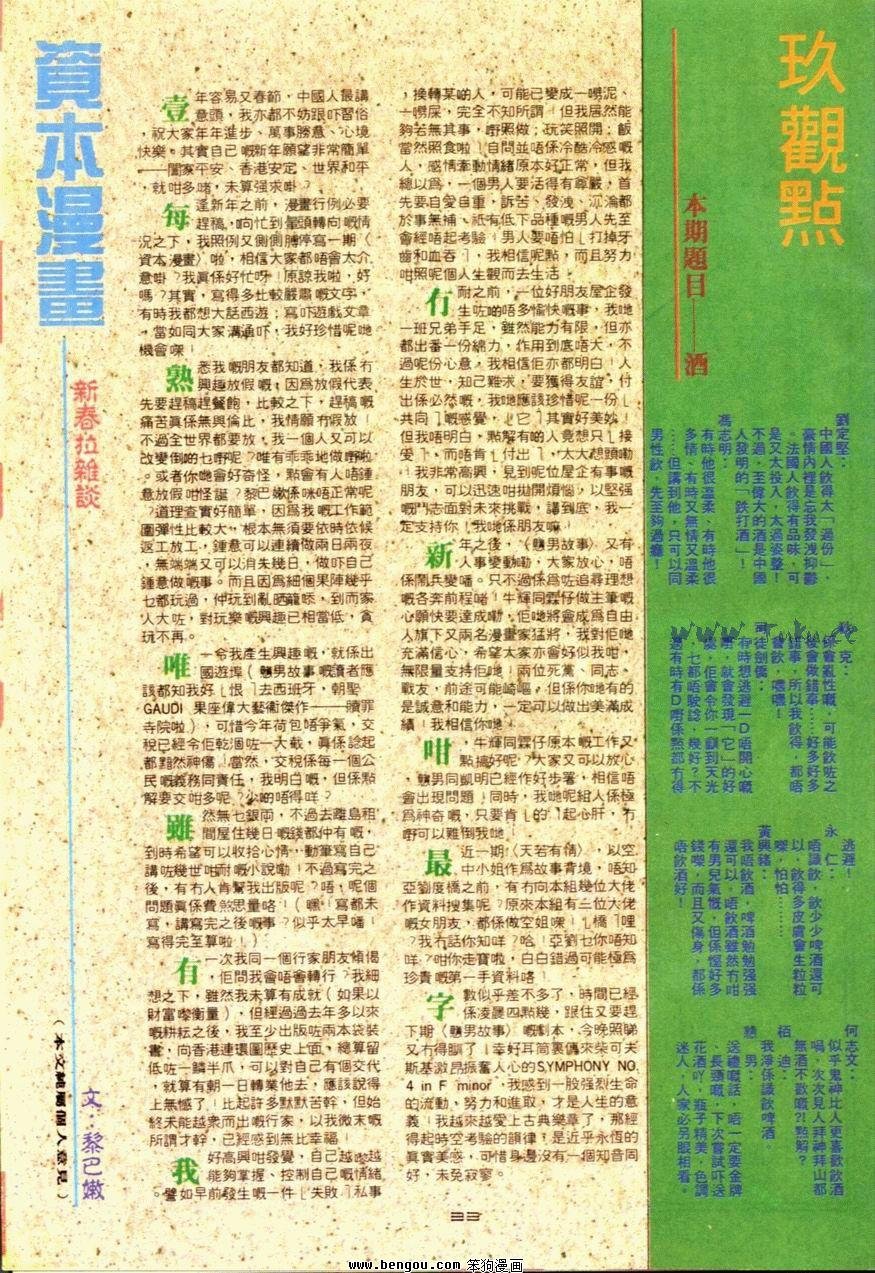 玖觀點
本期題目——酒
劉定堅：
中國人飲得太「過份」，
豪情內裡是忘我發洩抑鬱
。法國人飲得有品味，可
是又太投入，太過姿整！
不過，至偉大的酒是中國
人發明的「跌打酒」！
馮志明：
有時他很溫柔、有時他很
多情、有時又無情又溫柔
……但講到他，只可以同
男性飲，先至夠過癮！
係會亂性嘅，可能飲咗之
後會做錯事……好多好多
錯事，所以我飲得，都唔
會飲，嘿嘿！
司徒劍僑：
有時想逃避一D唔開心嘅
嘢，就會發現「它」的好
處，佢會令你一瞓到天光
，乜都唔駛諗，幾好？不
過有時有D嘢係點都冇得
逃避！
永仁：
唔識飲，飲少少啤酒還可
以，飲得多皮膚會生粒粒
㗎，怕怕……
黃興緒：
我唔飲酒，啤酒勉勉强强
還可以，唔飲酒雖然冇咁
有男兒氣慨，但係慳好多
錢㗎，而且又傷身，都係
唔飲酒好！
何志文：
似乎鬼神比人更喜歡飲酒
喎，次次見人拜神拜山都
無酒不歡嘅？！點解？
栢迪：
我淨係識飲啤酒
戇男：
送禮嘅話，唔一定要金牌
、長頸嘅，下次嘗試吓送
花酒吖，瓶子精美，色調
迷人，人家必另眼相看。
資本漫畫
新春拉雜談
文：黎巴嫩
（本文純屬個人意見）
壹年容易又春節，中國人最講
意頭，我亦都不妨跟吓習俗
，祝大家年年進步、萬事勝意、心境
快樂。其實自己嘅新年願望非常簡單
——闔家平安、香港安定、世界和平
，就咁多啫，未算强求啩？
每逢新年之前，漫畫行例必要
趕稿，向忙到暈頭轉向嘅情
況之下，我照例又側側膊停寫一期〈
資本漫畫〉啦，相信大家都唔會太介
意啩？我眞係好忙呀！原諒我啦，好
嗎？其實，寫得多比較嚴肅嘅文字，
有時我都想大話西遊；寫吓遊戲文章
，當如同大家溝通吓，我好珍惜呢哋
機會㗎！
熟悉我嘅朋友都知道，我係冇
興趣放假嘅！因爲放假代表
先要趕稿趕餐飽，比較之下，趕稿嘅
痛苦眞係無與倫比，我情願冇假放！
不過全世界都要放，我一個人又可以
改變倒的乜嘢呢？唯有乖乖地做嘢啦
。或者你哋會好奇怪，點會有人唔鍾
意放假咁怪誕？黎巴嫩係咪唔正常呢
？道理查實好簡單，因爲我嘅工作範
圍彈性比較大，根本無須要依時依候
返工放工，鍾意可以連續做兩日兩夜
，無端端又可以消失幾日，做吓自己
鍾意做嘅事。而且因爲細個果陣幾乎
乜都玩過，仲玩到亂晒籠㖭，到而家
人大咗，對玩樂嘅興趣已相當低，貪
玩不再。
唯一令我產生興趣嘅，就係出
國遊埠（戇男故事嘅讀者應
該都知我好「恨」去西班牙，朝聖
GAUDI 果座偉大藝術傑作——贖罪
寺院啦），可惜今年荷包唔爭氣，交
稅已經令佢乾涸咗一大截，眞係諗起
都黯然神傷！當然，交稅係每一個公
民嘅義務同責任，我明白嘅，但係點
解要交咁多呢？少啲唔得咩？
雖然無乜銀両，不過去離島租
間屋住幾日嘅錢都仲有嘅，
到時希望可以收拾心情，動筆寫自己
講咗幾世咁耐嘅小說嘞！不過寫完之
後，有冇人肯幫我出版呢？唔，呢個
問題眞係費煞思量咯！（嘿！寫都未
寫，講寫完之後嘅事？似乎太早噃！
寫得完至算啦！）
有一次我同一個行家朋友傾偈
，佢問我會唔會轉行？我細
想之下，雖然我未算有成就（如果以
財富嚟衡量），但經過過去年多以來
嘅耕耘之後，我至少出版咗兩本袋裝
書，向香港連環圖歷史上面，總算留
低咗一鱗半爪，可以對自己有個交代
，就算有朝一日轉業他去，應該說得
上無憾了！比起許多默默苦幹，但始
終未能越衆而出嘅行家，以我微末嘅
所謂才幹，已經感到無比幸福！
我好高興咁發覺，自己越嚟越
能夠掌握、控制自己嘅情緒
。譬如早前發生嘅一件「失敗」私事
，換轉某啲人，可能已變成一嚿泥、
一嚿屎，完全不知所謂！但我居然能
夠若無其事，嘢照做；玩笑照開；飯
當然照食啦！自問並唔係冷酷冷感嘅
人，感情牽動情緒原本好正常，但我
總以爲，一個男人要活得有尊嚴，首
先要自愛自重，訴苦、發洩、沉淪都
於事無補、祇有低下品種嘅男人先至
會經唔起考驗！男人要唔怕「打掉牙
齒和血吞」，我相信呢點，而且努力
咁照呢個人生觀而去生活。
冇耐之前，一位好朋友屋企發
生咗啲唔多愉快嘅事，我哋
一班兄弟手足，雖然能力有限，但亦
都出番一份綿力，作用到底唔大，不
過呢份心意，我相信佢亦都明白！人
生於世，知己難求，要獲得友誼，付
出係必然嘅，我哋應該珍惜呢一份「
共同」嘅感覺，「它」其實好美妙！
但我唔明白，點解有啲人竟想只「接
受」，而唔肯「付出」，太大想頭嘞
！我非常高興，見到呢位屋企有事嘅
朋友，可以迅速咁拋開煩惱，以堅强
嘅鬥志面對未來挑戰，講到底，我一
定支持你！我哋係朋友嘛！
新年之後，〈戇男故事〉又有
人事變動嘞，大家放心，唔
係鬧兵變噃。只不過係爲咗追尋理想
嘅各奔前程啫！牛輝同霖仔做主筆嘅
心願快要達成嘞，佢哋將會成爲自由
人旗下又兩名漫畫家猛將，我對佢哋
充滿信心，希望大家亦會好似我咁，
無限量支持佢哋！兩位死黨、同志、
戰友，前途可能崎嶇，但係你哋有的
是誠意和能力，一定可以做出美滿成
績！我相信你哋！
咁，牛輝同霖仔原本嘅工作又
點搞好呢？大家又可以放心
，戇男同凱明已經作好步署，相信唔
會出現問題！同時，我哋呢組人係極
爲神奇嘅，只要肯「的」起心肝，冇
嘢可以難倒我哋！
最近一期〈天若有情〉，以空
中小姐作爲故事背境，唔知
亞劉度橋之前，有冇向本組幾位大佬
作資料搜集呢？原來本組有三位大佬
嘅女朋友，都係做空姐㗎！「橋」哩
？我冇話你知咩？哈！亞劉乜你唔知
咩？咁你走寶啦，白白錯過可能極爲
珍貴嘅第一手資料咯！
字數似乎差不多了，時間已經
係凌晨四點幾，跟住又要趕
下期〈戇男故事〉嘅劇本，今晚照睇
又冇得瞓了！幸好耳筒裏傳來柴可夫
斯基激昂振奮人心的SYMPHONY NO.
4 in F minor，我感到一股强烈生命
的流動，努力和進取，才是人生的意
義！我越來越愛上古典樂章了，那經
得起時空考驗的韻律，是近乎永恆的
眞實美感，可惜身邊沒有一個知音同
好，未免寂寥。
33
www.bengou.com 笨狗漫画